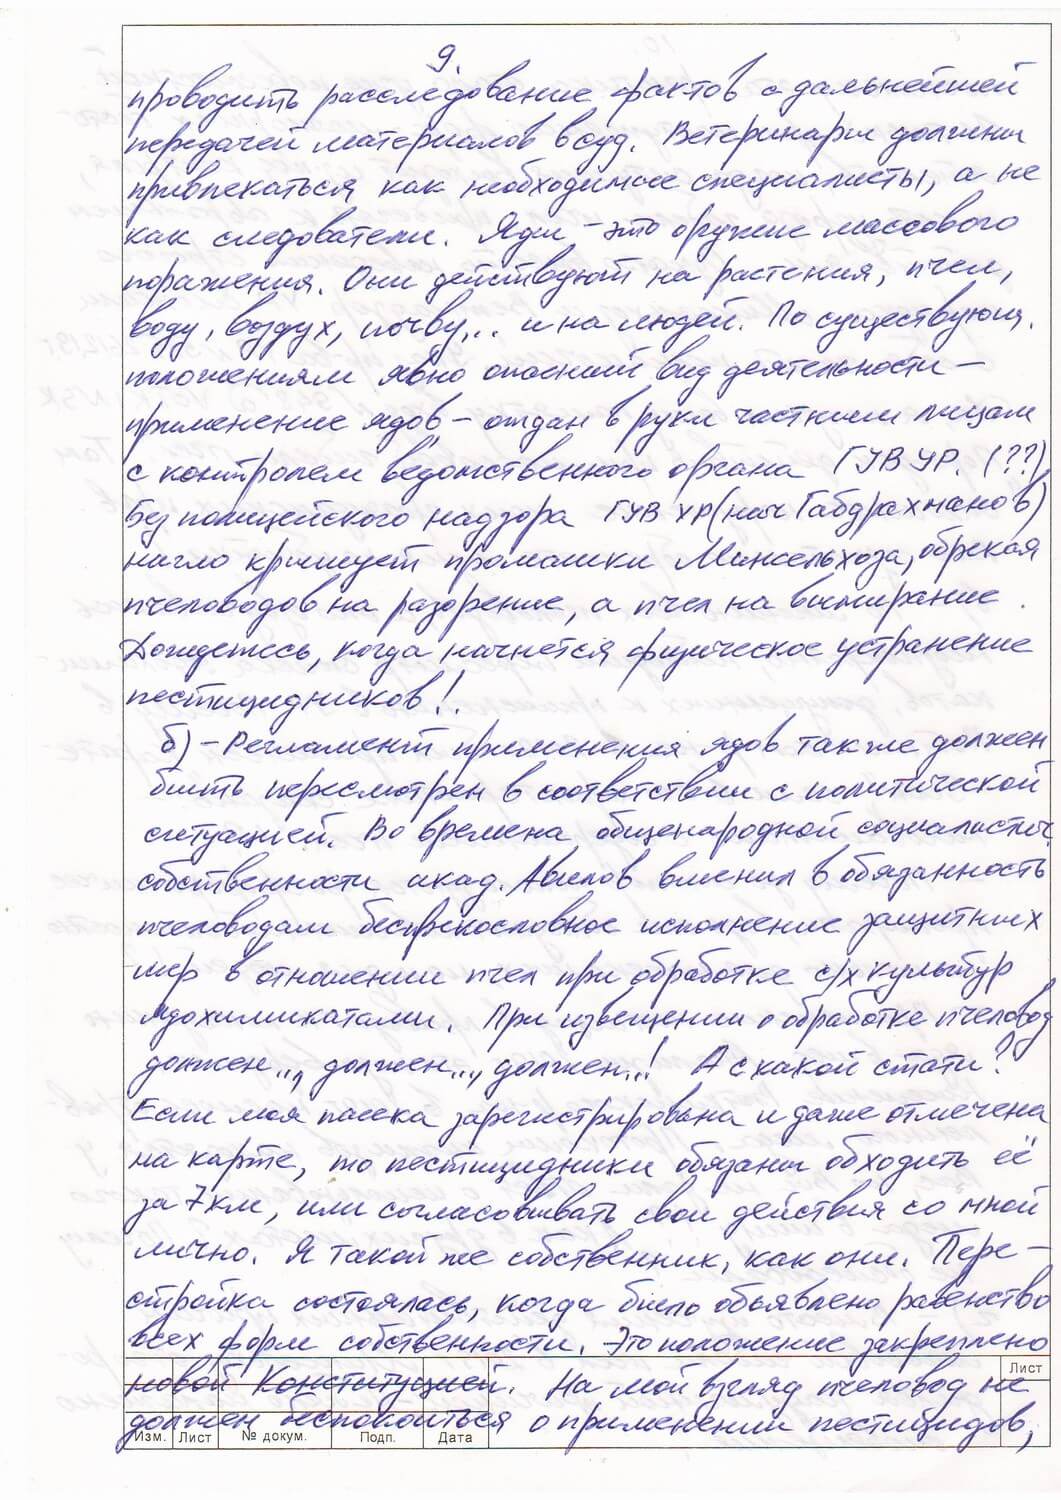 9.
проводить расследование фактов с дальнейшей
передачей материалов в суд. Ветеринары должны
привлекаться как необходимые специалисты, а не
как следователи. Яды – это оружие массового
поражения. Они действуют на растения, пчел,
воду, воздух, почву... и на людей. По существующ.
положениям явно опасный вид деятельности –
применение ядов – отдан в руки частным лицам
с контролем ведомственного органа ГУВ УР. (??)
Без полицейского надзора ГУВ УР (нач Габдрахманов)
нагло крышует промашки Минсельхоза, обрекая
пчеловодов на разорение, а пчел на вымирание.
Дождетесь, когда начнется физическое устранение
пестицидников!.
б) – Регламент применения ядов также должен
быть пересмотрен в соответствии с политической
ситуацией. Во времена общенародной социалистич.
собственности акад. Авилов вменил в обязанность
пчеловодам беспрекословное исполнение защитных
мер в отношении пчел при обработке с/х культур
ядохимикатами. При извещении о обработке пчеловод
должен..., должен..., должен...! А с какой стати?
Если моя пасека зарегистрирована и даже отмечена
на карте, то пестицидники обязаны обходить её
за 7 км, или согласовывать свои действия со мной
лично. Я такой же собственник, как они. Пере-
стройка состоялась, когда было объявлено равенство
всех форм собственности. Это положение закреплено
новой Конституцией. На мой взгляд пчеловод не
должен беспокоиться о применении пестицидов,
Лист
Изм. Лист № докум. Подп. Дата